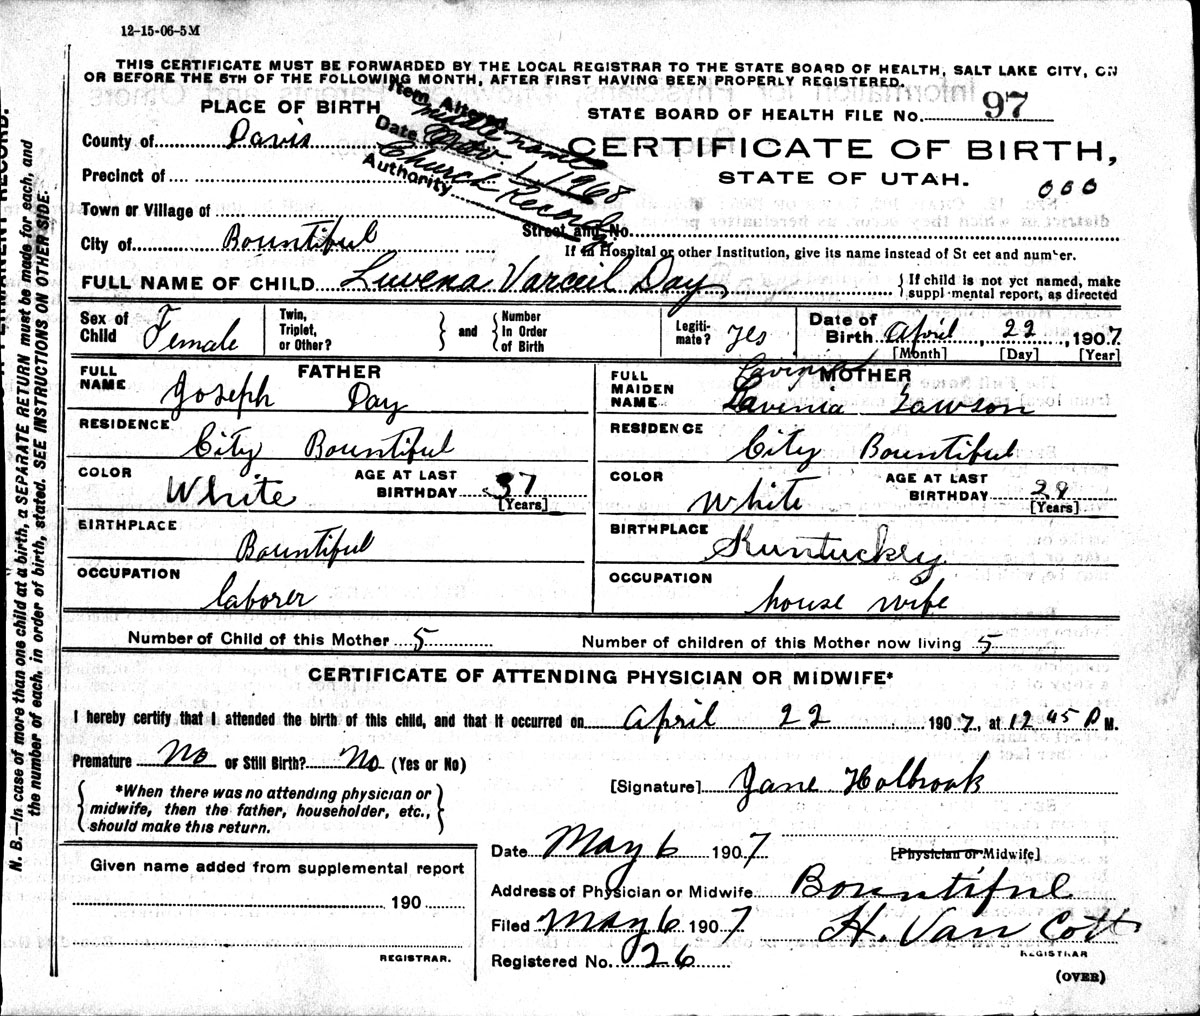 12-15-06-5M
THIS CERTIFICATE MUST BE FORWARDED BY THE LOCAL REGISTRAR TO THE STATE BOARD OF HEALTH, SALT LAKE CITY, ON
OR BEFORE THE 5TH OF THE FOLLOWING MONTH, AFTER FIRST HAVING BEEN PROPERLY REGISTERED.
PLACE OF BIRTH
Item Attend
middle name
Date Nov. 1, 1968
Church Records
Authority
STATE BOARD OF HEALTH FILE No. 97
CERTIFICATE OF BIRTH,
STATE OF UTAH.
000
County of Davis
Precinct of
Town or Village of
Street and No.
City of Bountiful
If in Hospital or other Institution, give its name instead of St eet and number.
FULL NAME OF CHILD Luvena Vareul Day
{ If child is not yet named, make
suppl mental report, as directed
Sex of Child Female
Twin, Triplet, or Other? } and { Number In Order of Birth
Legiti- mate? Yes
Date of Birth April, 22, 1907
[Month] [Day] [Year]
FATHER
FULL NAME Joseph Day
RESIDENCE City Bountiful
COLOR White
AGE AT LAST BIRTHDAY 37 [Years]
BIRTHPLACE Bountiful
OCCUPATION laborer
MOTHER
FULL MAIDEN NAME Lavinia Lawson
RESIDENCE City Bountiful
COLOR White
AGE AT LAST BIRTHDAY 28 [Years]
BIRTHPLACE Kuntuckey
OCCUPATION house wife
Number of Child of this Mother 5 Number of children of this Mother now living 5
CERTIFICATE OF ATTENDING PHYSICIAN OR MIDWIFE*
I hereby certify that I attended the birth of this child, and that it occurred on April 22 1907, at 12 45 P M.
Premature No or Still Birth? No (Yes or No)
{ *When there was no attending physician or
midwife, then the father, householder, etc.,
should make this return. }
[Signature] Jane Holbrook
[Physician or Midwife]
Date May 6 1907
Address of Physician or Midwife Bountiful
Filed May 6 1907 H. Van Cott
REGISTRAR
Registered No. 26
(OVER)
Given name added from supplemental report
190
REGISTRAR.
N. B.—In case of more than one child at a birth, a SEPARATE RETURN must be made for each, and
the number of each, in order of birth, stated. SEE INSTRUCTIONS ON OTHER SIDE.